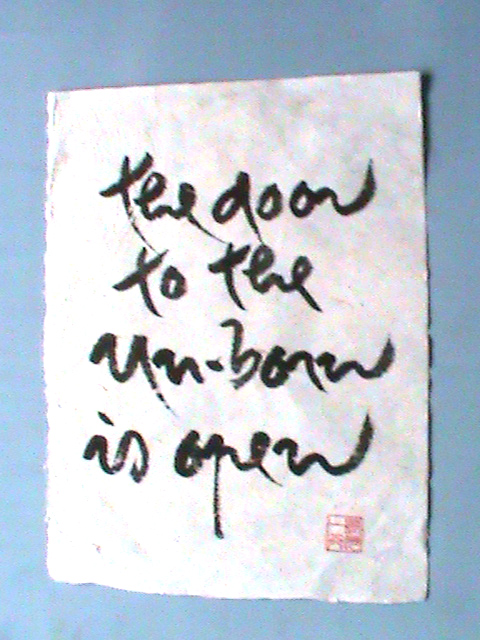 the door
to the
un-born
is open